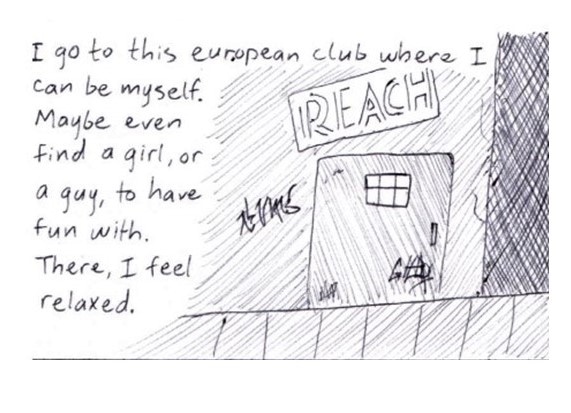 I go to this european club where I
can be myself.
Maybe even
find a girl, or
a guy, to have
fun with.
There, I feel
relaxed.
REACH